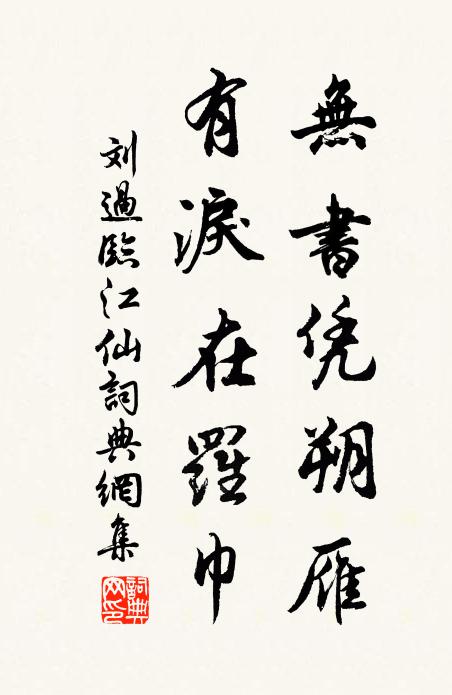 無書凭朔雁
有淚在羅巾
刘過臨江仙詞典網集
詞典網印